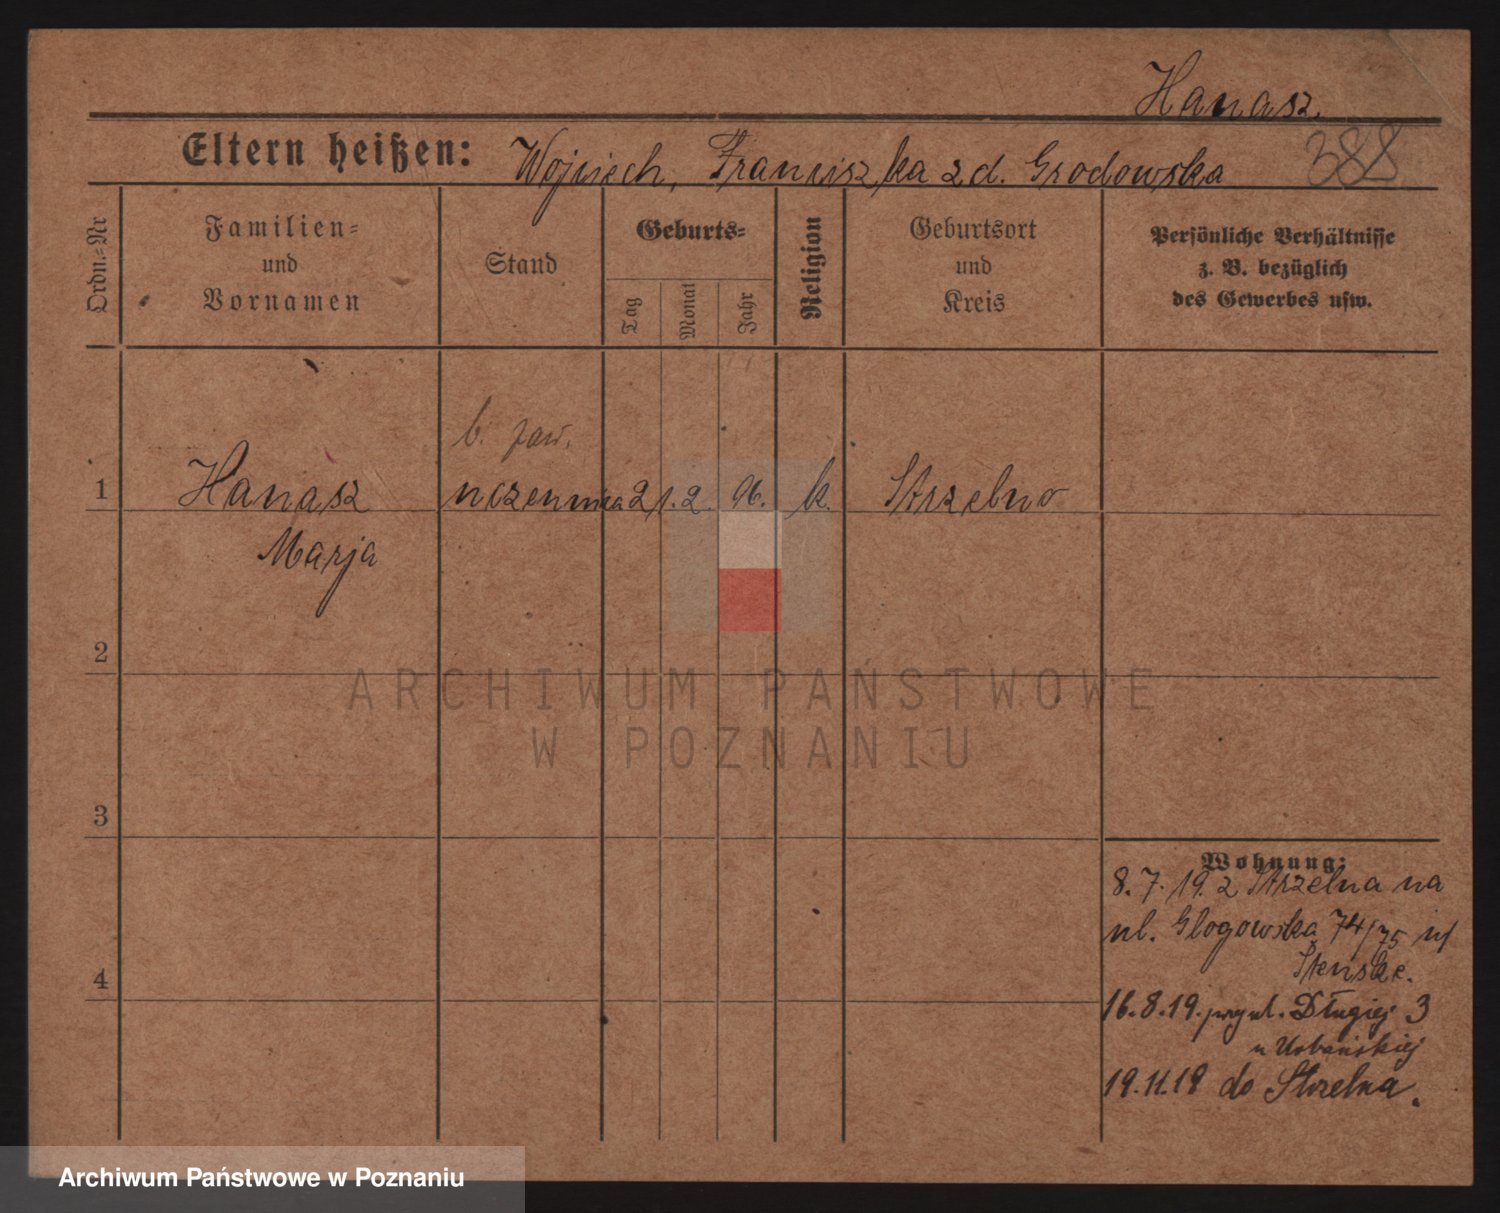 Hanasz
388
Eltern heißen: Wojciech, Franciszka z d. Grodowska
Ordn.=Nr
Familien=
und
Vornamen
Stand
Geburts=
Tag
Monat
Jahr
Religion
Geburtsort
und
Kreis
Persönliche Verhältnisse
z. B. bezüglich
des Gewerbes usw.
b. zaw.
1 Hanasz uczennica 21. 2. 96. k. Strzelno
Marja
2
ARCHIWUM PAŃSTWOWE
W POZNANIU
3
Wohnung:
8. 7. 19. z Strzelna na
ul. Glogowska 74/75 u/
4
16. 8. 19. przy ul. Długiej 3
u Urbańskiej
19. 11. 19 do Strzelna.
Archiwum Państwowe w Poznaniu